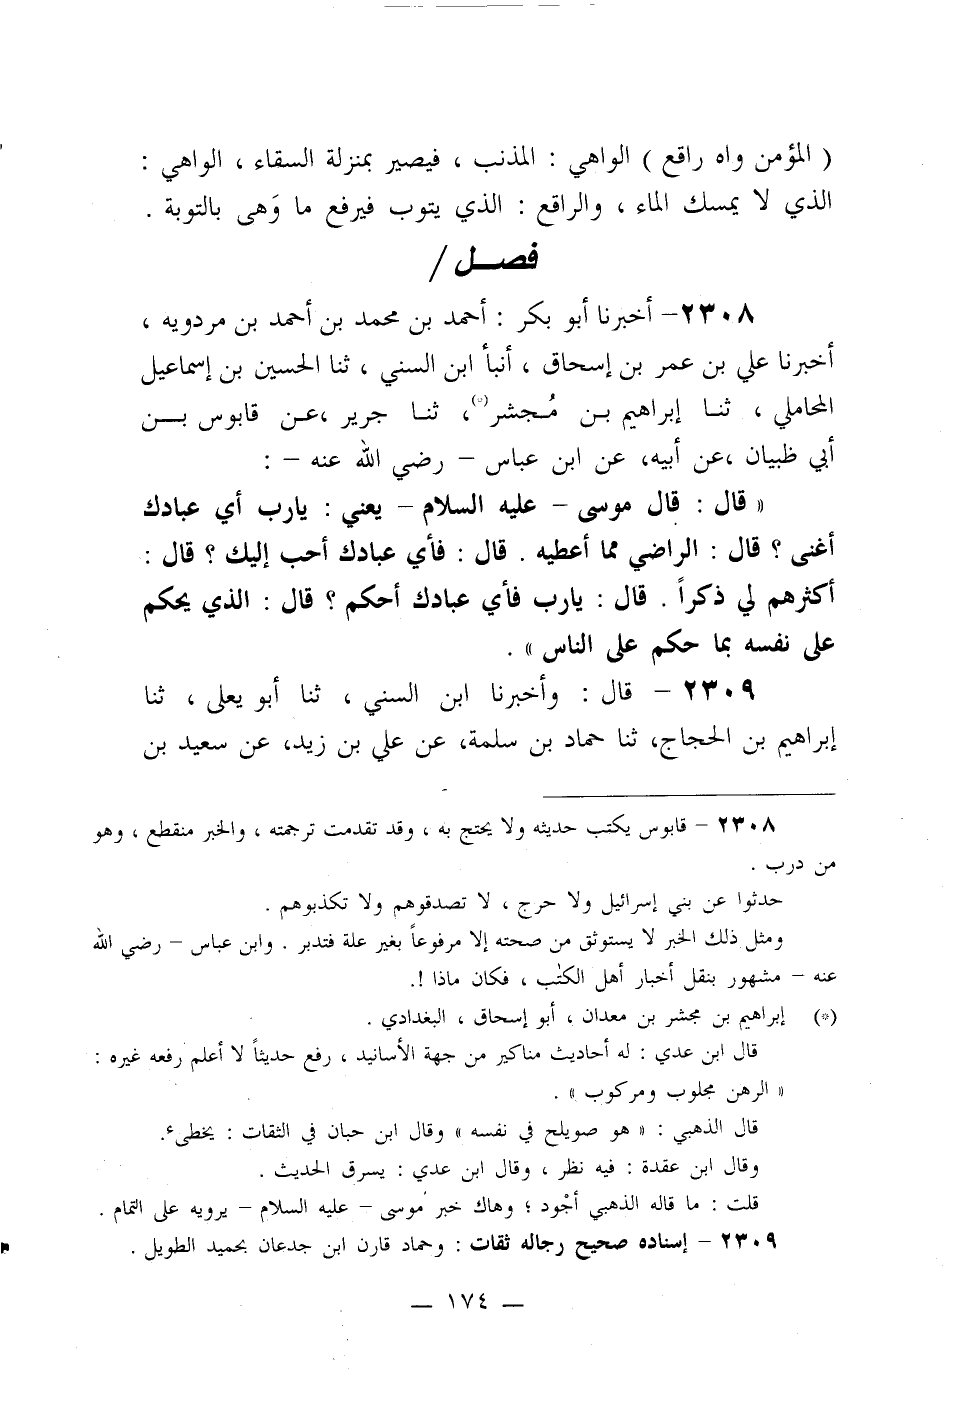 ( المؤمن واه راقع ) الواهي : المذنب ، فيصير بمنزلة السقاء ، الواهي :
الذي لا يمسك الماء ، والراقع : الذي يتوب فيرفع ما وَهى بالتوبة .
فصـــل /
٢٣٠٨ – أخبرنا أبو بكر : أحمد بن محمد بن أحمد بن مردويه ،
أخبرنا علي بن عمر بن إسحاق ، أنبأ ابن السني ، ثنا الحسين بن إسماعيل
المحاملي ، ثنـا إبراهيم بـن مُـجشر(*)، ثنـا جرير ،عـن قابوس بـــن
أبي ظبيان ،عن أبيه، عن ابن عباس – رضي الله عنه – :
« قال : قال موسى – عليه السلام – يعني : يارب أي عبادك
أغنى ؟ قال : الراضي مما أعطيه . قال : فأي عبادك أحب إليك ؟ قال :
أكثرهم لي ذكراً . قال : يارب فأي عبادك أحكم ؟ قال : الذي يحكم
على نفسه بما حكم على الناس » .
٢٣٠٩ – قال : وأخبرنا ابن السني ، ثنا أبو يعلى ، ثنا
إبراهيم بن الحجاج، ثنا حماد بن سلمة، عن علي بن زيد، عن سعيد بن
٢٣٠٨ – قابوس يكتب حديثه ولا يحتج به ، وقد تقدمت ترجمته ، والخبر منقطع ، وهو
من درب .
حدثوا عن بني إسرائيل ولا حرج ، لا تصدقوهم ولا تكذبوهم .
ومثل ذلك الخبر لا يستوثق من صحته إلا مرفوعاً بغير علة فتدبر . وابن عباس – رضي الله
عنه – مشهور بنقل أخبار أهل الكتٰب ، فكان ماذا !.
(*) إبراهيم بن مجشر بن معدان ، أبو إسحاق ، البغدادي .
قال ابن عدي : له أحاديث مناكير من جهة الأسانيد ، رفع حديثاً لا أعلم رفعه غيره :
« الرهن مجلوب ومركوب » .
قال الذهبي : « هو صويلح في نفسه » وقال ابن حبان في الثقات : يخطىء.
وقال ابن عقدة : فيه نظر ، وقال ابن عدي : يسرق الحديث .
قلت : ما قاله الذهبي أجْود ؛ وهاك خبر مُوسى – عليه السلام – يرويه على التمام .
٢٣٠٩ – إسناده صحيح رجاله ثقات : وحماد قارن ابن جدعان بحميد الطويل .
— ١٧٤ —